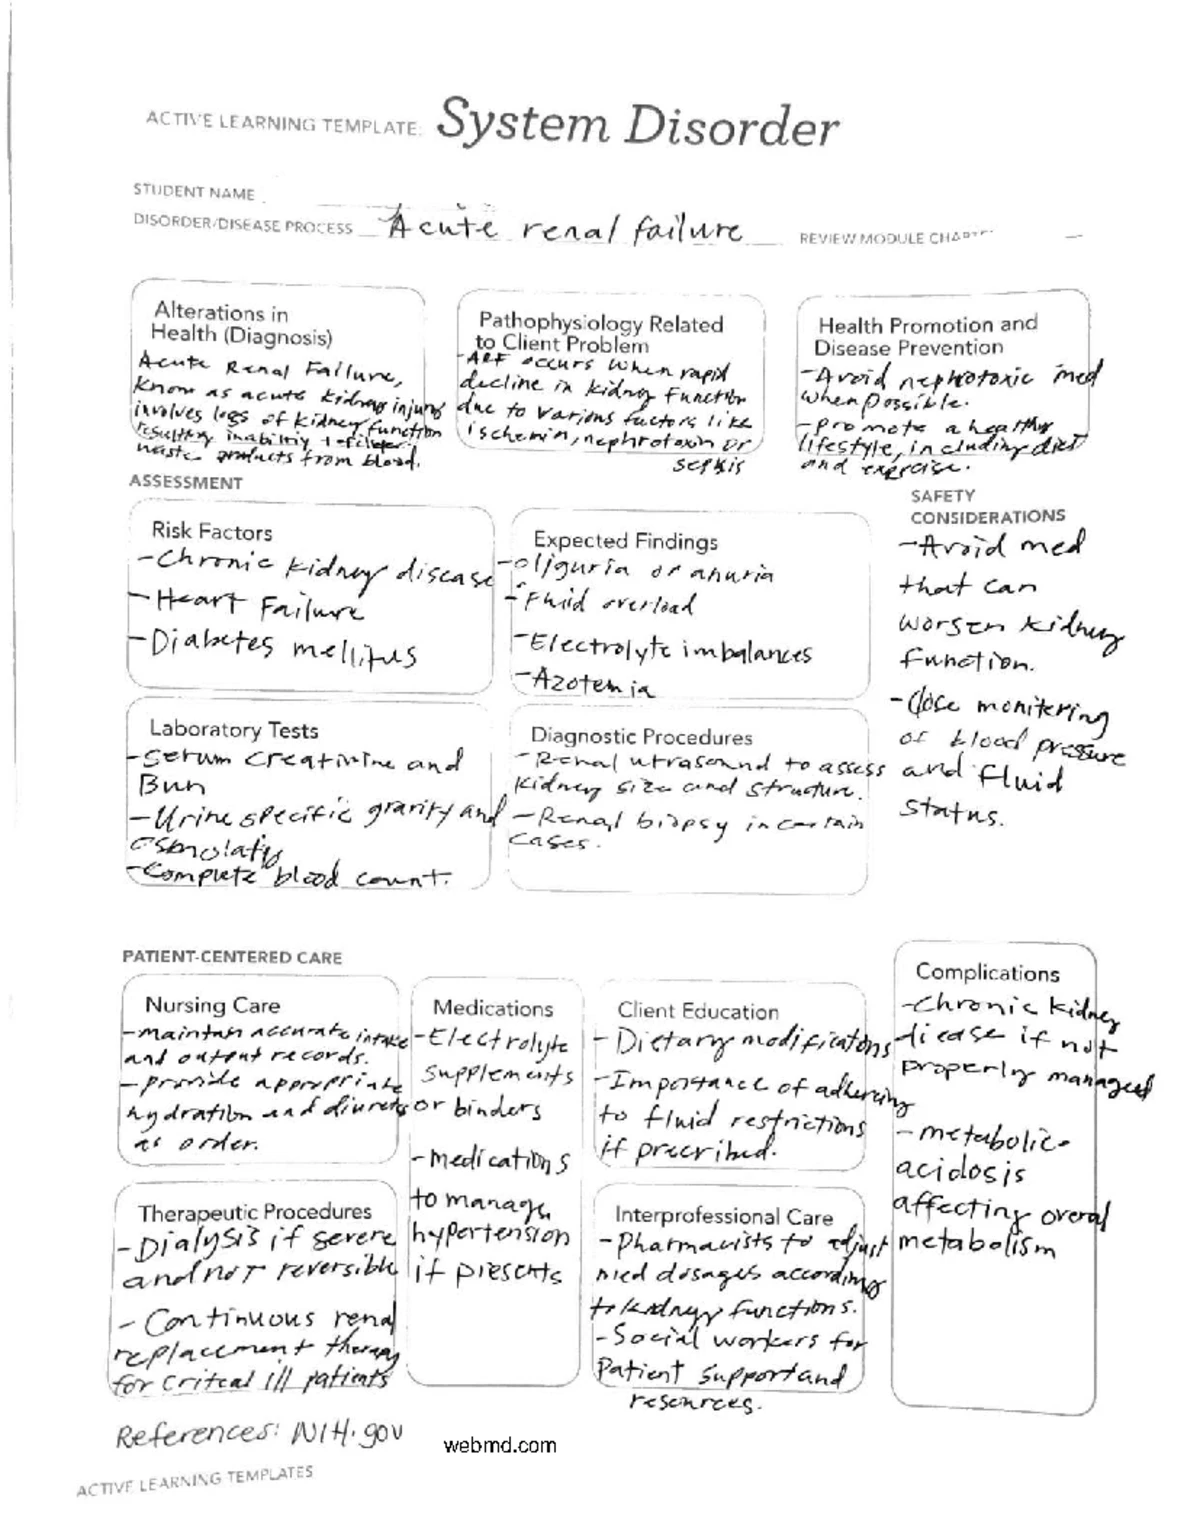 ACTIVE LEARNING TEMPLATE: System Disorder
STUDENT NAME
DISORDER/DISEASE PROCESS Acute renal failure
REVIEW MODULE CHAPT
Alterations in
Health (Diagnosis)
Acute Renal Failure,
Know as acute kidney injury
involves loss of kidney function
resulting inability t filter
waste products from blood.
Pathophysiology Related
to Client Problem
-ARF occurs when rapid
decline in kidney function
due to various factors like
ischemia, nephrotoxin or
sepsis
Health Promotion and
Disease Prevention
-Avoid nephrotoxic med
when possible.
-promote a healthy
lifestyle, including diet
and exercise.
ASSESSMENT
Risk Factors
-Chronic kidney disease
-Heart Failure
-Diabetes mellitus
Expected Findings
-oliguria or anuria
-Fluid overload
-Electrolyte imbalances
-Azotemia
SAFETY
CONSIDERATIONS
-Avoid med
that can
worsen kidney
function.
-Close monitoring
of blood pressure
and fluid
status.
Laboratory Tests
-serum creatinine and
Bun
-Urine specific gravity and
osmolaty
-Complete blood count.
Diagnostic Procedures
-Renal utrasound to assess
kidney size and structure.
-Renal biopsy in certain
cases.
PATIENT-CENTERED CARE
Nursing Care
-maintain accurate intake
and output records.
-provide appropriate
hydration and diurets
as order.
Medications
-Electrolyte
supplements
or binders
-medications
to manage
hypertension
if presents
Client Education
-Dietary modifications
-Importance of adhering
to fluid restrictions
if precribed.
Complications
-Chronic kidney
diease if not
properly managed
-metabolic
acidosis
affecting overal
metabolism
Therapeutic Procedures
-Dialysis if severe
and not reversible
-Continuous renal
replacement therapy
for critcal ill patients
Interprofessional Care
-Pharmacists to adjust
med dosages according
to kidney functions.
-Social workers for
Patient support and
resources.
References: NIH.gov
webmd.com
ACTIVE LEARNING TEMPLATES